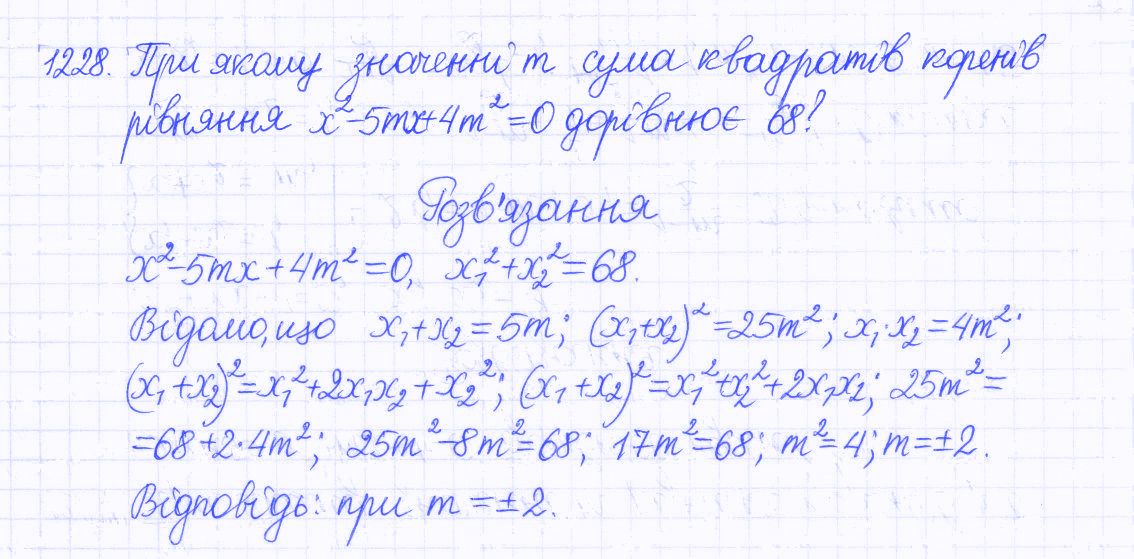 1228. При якому значенні m сума квадратів коренів
рівняння x²-5mx+4m²=0 дорівнює 68?
Розв'язання
x²-5mx+4m²=0, x₁²+x₂²=68.
Відомо, що x₁+x₂=5m; (x₁+x₂)²=25m²; x₁·x₂=4m²;
(x₁+x₂)²=x₁²+2x₁x₂+x₂²; (x₁+x₂)²=x₁²+x₂²+2x₁x₂; 25m²=
=68+2·4m²; 25m²-8m²=68; 17m²=68; m²=4; m=±2.
Відповідь: при m=±2.